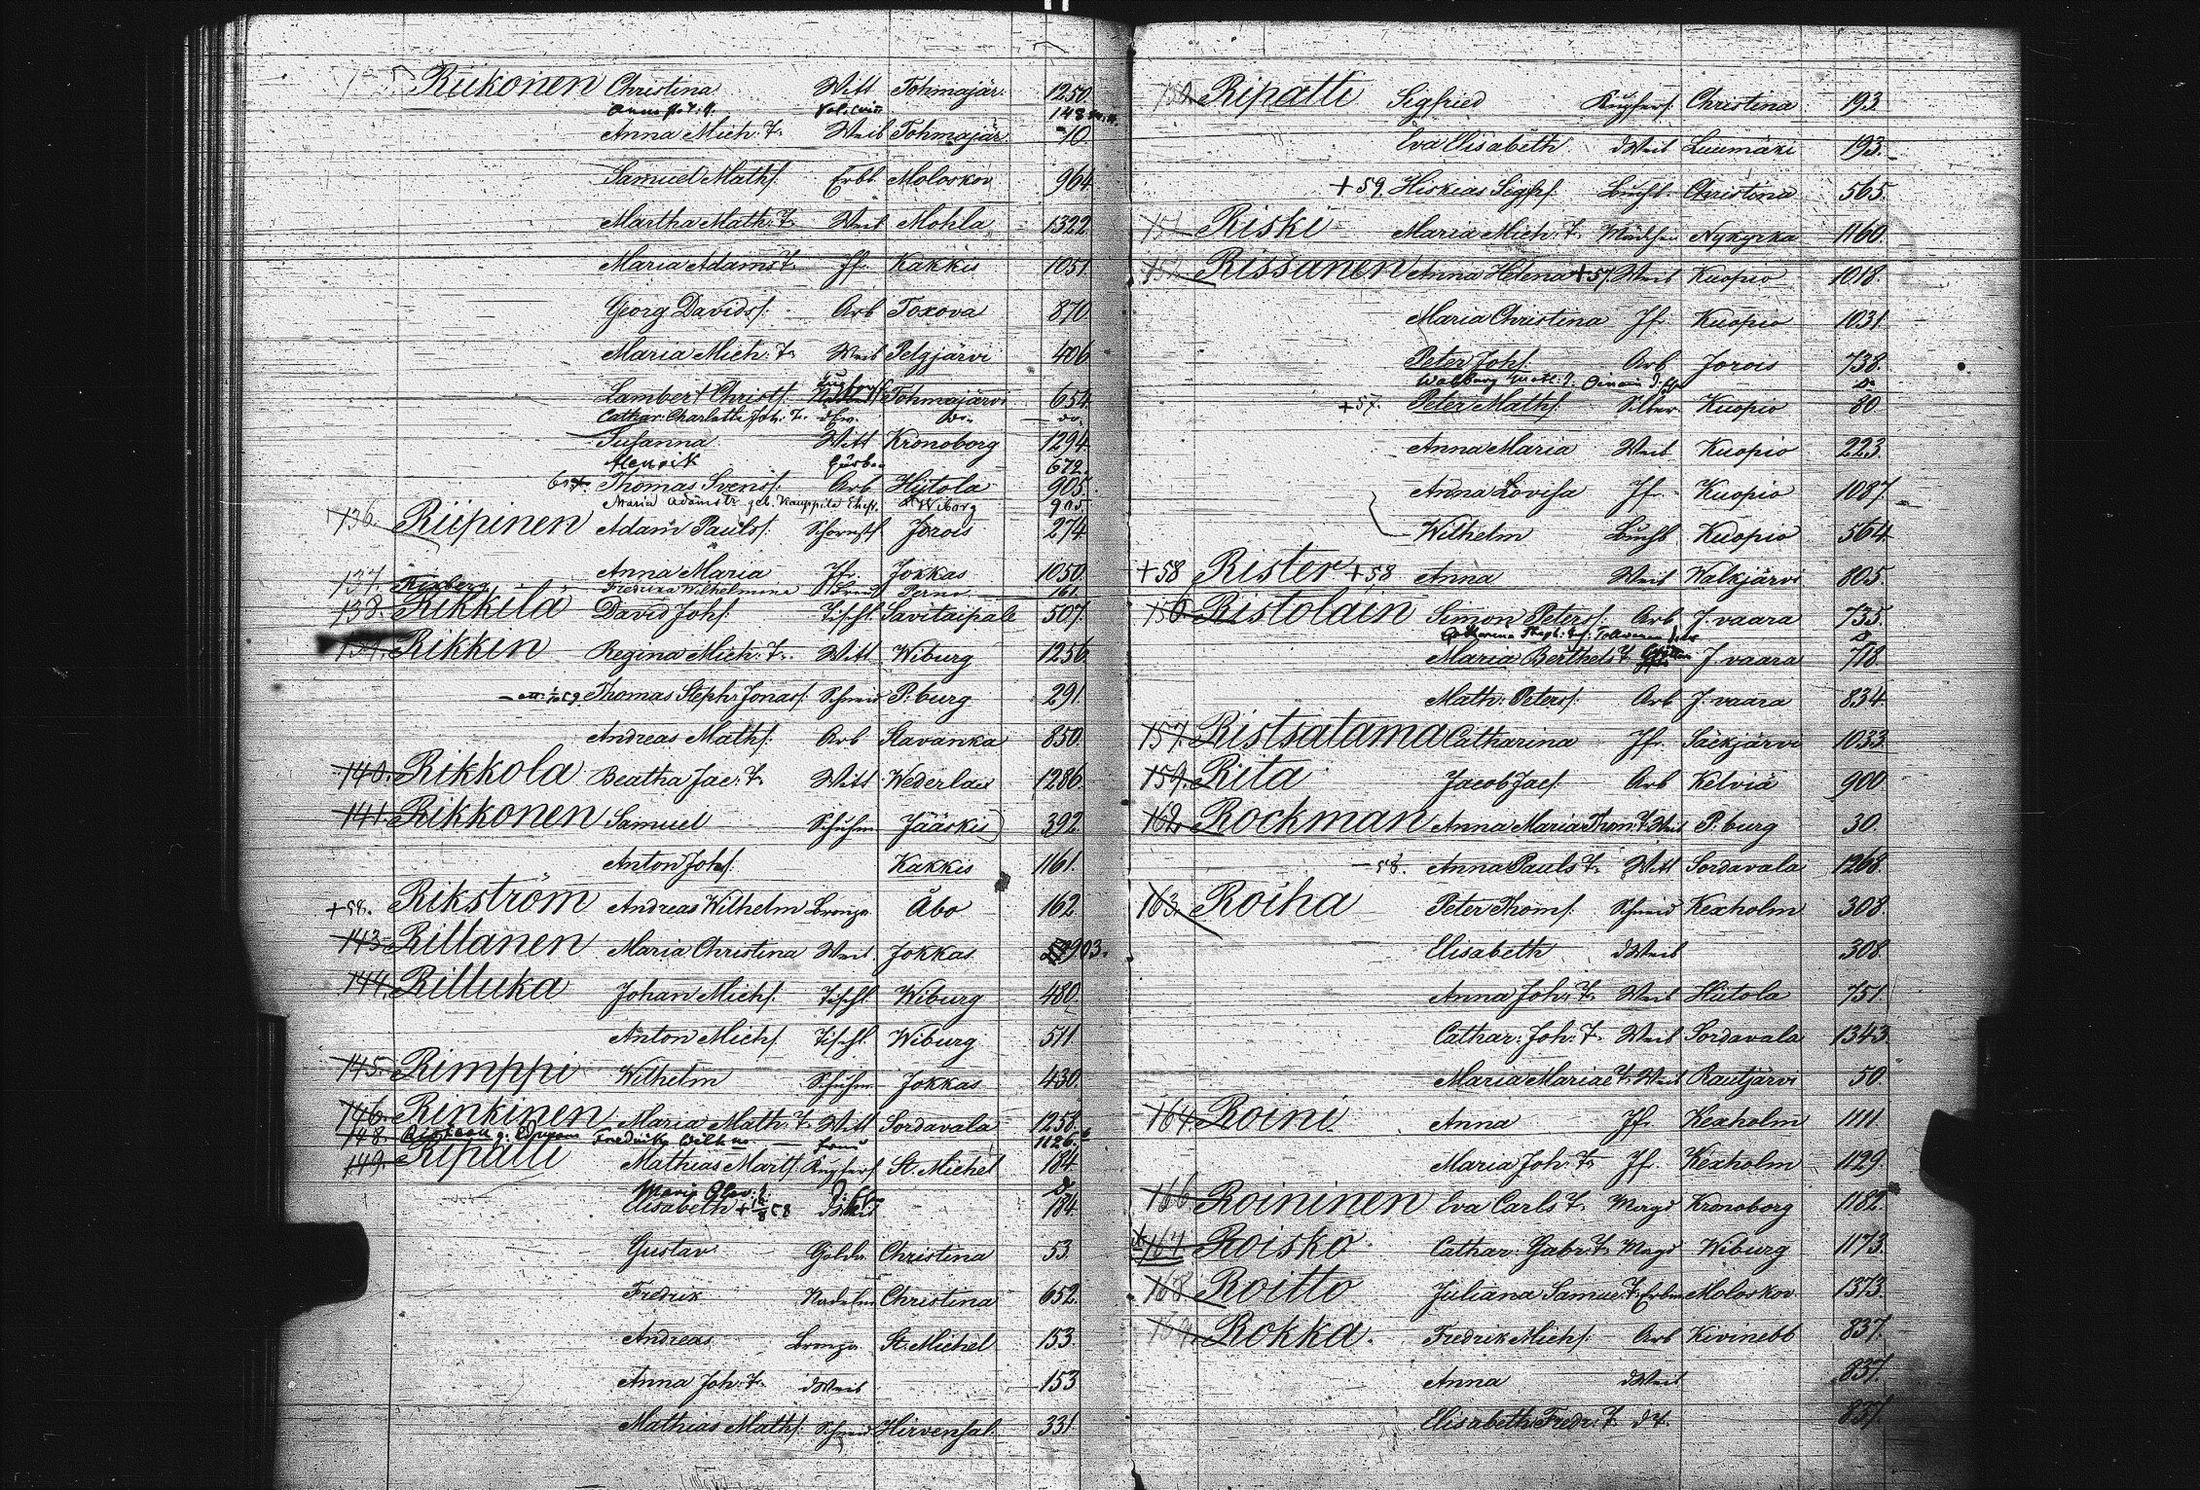 Riikonen Christina Witt Tohmajär. 1250.
Anna Mich. T. Weib Tohmajär. 10.
Samuel Maths. Erbl Moloskov 964
Martha Math. T. Weib Mohla 1322
Maria Adams T. Jfr. Kakkis 1051
Georg Davids. Arb Toxova 870
Maria Mich. T. Weib Pelgjärvi 406
Lambert Christ. Tohmajärvi 654
Cathar. Charlotta Joh. T. do.
Susanna Witt Kronoborg 1294
Henrik 672.
Thomas Svens. Arb Hiitola 905.
Maria Adamstr. geb. Kauppila Wiborg 905.
136. Riipinen Adam Pauls. Schornst Jorois 274
Anna Maria Jfr. Jokkas 1050.
137. Rixberg Fredrika Wilhelmina Perno 161.
138. Rikkilä David Johs. Tischl. Savitaipale 507.
139. Rikkin Regina Mich. T. Witt Wiburg 1256
Thomas Steph. Jonas. Schneid P. burg 291.
Andreas Maths. Arb Slavanka 850.
140. Rikkola Beatha Jac. T. Witt Wederlax 1286.
141. Rikkonen Samuel Schuhm Jääskis 392.
Anton Johs. Kakkis 1161.
+58. Rikström Andreas Wilhelm Bronza Åbo 162.
143. Rillanen Maria Christina Weib Jokkas 903.
144. Rilluka Johan Michs. Tischl Wiburg 480.
Anton Michs. Tischl. Wiburg 511.
145. Rimppi Wilhelm Schuhm Jokkas 430.
146. Rinkinen Maria Math. T. Witt Sordavala 1258.
148. Fredrika 1126.
149. Ripatti Mathias Marts. Kupfers. St. Michel 184.
Maria Olav.
Elisabeth + 58 dWeib 184.
Gustav Goldn Christina 53
Fredrik Nadelm Christina 652.
Andreas Bronza St. Michel 153.
Anna Joh. T. dWeib 153
Mathias Maths. Schneid Hirvensal. 331
150. Ripatti Sigfried Kupfers. Christina 193.
Eva Elisabeth dWeib Luumäki 193.
+59. Hiskias Sigfs. Buchb. Christina 565.
151. Riski Maria Mich. T. Mädchen Nykyrka 1160.
152. Rissanen Anna Helena +57. Weib Kuopio 1018.
Maria Christina Jfr. Kuopio 1031.
Peter Johs. Arb Jorois 738.
Walborg
+57. Peter Maths. Silber. Kuopio 80.
Anna Maria Weib Kuopio 223.
Anna Lovisa Jfr. Kuopio 1087.
Wilhelm Buchb Kuopio 564
+58 Rister +58 Anna Weib Walkjärvi 805.
156. Ristolain Simon Peters. Arb J. vaara 735.
Maria Berthels T. J. vaara 718.
Math. Peters. Arb J. vaara 834
157. Ristsatama Catharina Jfr. Säckjärvi 1033.
159. Rita Jacob Jacs. Arb Kelviä 900.
162. Rockman Anna Maria Thom. T. Weib P. burg 30.
58. Anna Pauls T. Witt Sordavala 1268.
163. Roiha Peter Thoms. Schneid Kexholm 308.
Elisabeth dWeib 308.
Anna Joh. T. Weib Hiitola 751.
Cathar. Joh. T. Weib Sordavala 1343.
Maria Mariae T. Weib Rautjärvi 50.
164. Roini Anna Jfr. Kexholm 1111.
Maria Joh. T. Jfr. Kexholm 1129.
166. Roininen Eva Carls T. Magd Kronoborg 1182.
167. Roisko Cathar. Gabr. T. Magd Wiburg 1173.
168. Roitto Juliana Samuel T. Erbm Moloskov 1373.
169. Rokka Fredrik Michs. Arb Kivinebb 837.
Anna dWeib 837.
Elisabeth Fredr. T. dT. 837.